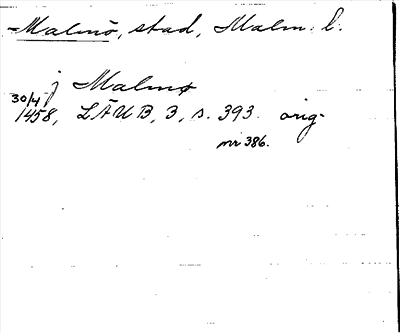 -Malmö, stad, Malm. l.
j Malmø
30/4
1458, LÄUB, 3, s. 393. orig.
nr 386.